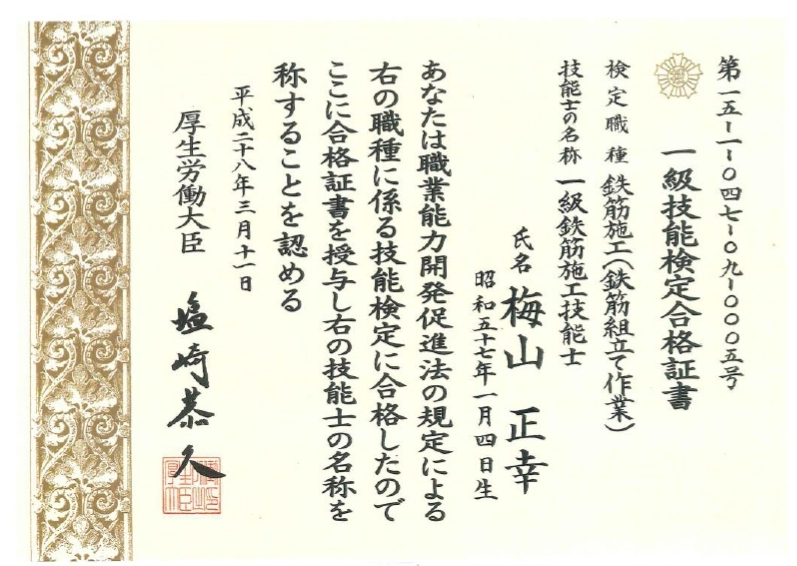 第一五-一-〇四七-〇九-〇〇〇五号
一級技能検定合格証書
検定職種 鉄筋施工(鉄筋組立て作業)
技能士の名称 一級鉄筋施工技能士
氏名 梅山 正幸
昭和五十七年一月四日生
あなたは職業能力開発促進法の規定による
右の職種に係る技能検定に合格したので
ここに合格証書を授与し右の技能士の名称を
称することを認める
平成二十八年三月十一日
厚生労働大臣 塩崎恭久